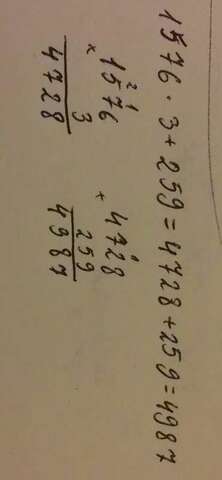 1576 · 3 + 259 = 4728 + 259 = 4987
2 1
× 1576
3
4728
1
+ 4728
259
4987